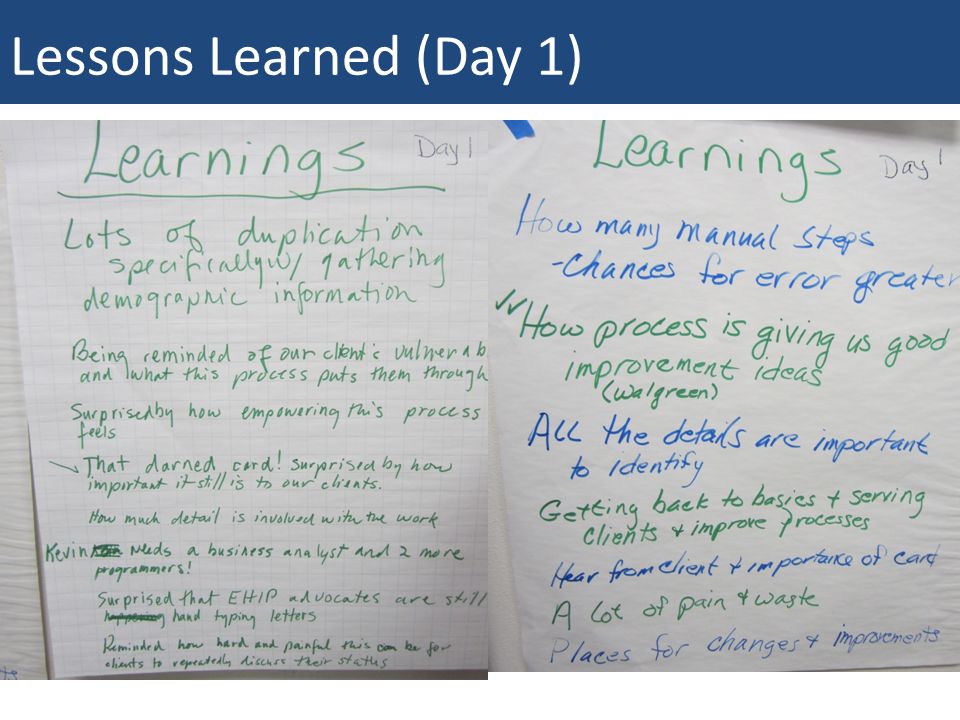 Lessons Learned (Day 1)
Learnings Day 1
Lots of duplication
specifically w/ gathering
demographic information
Being reminded of our client's vulnerab
and what this process puts them through
Surprised by how empowering this process
feels
That darned card! Surprised by how
important it still is to our clients.
How much detail is involved with the work
Kevin needs a business analyst and 2 more
programmers!
Surprised that EHIP advocates are still
hand typing letters
Reminded how hard and painful this can be for
clients to repeatedly discuss their status
Learnings Day 1
How many manual steps
- Chances for error greater
How process is giving us good
improvement ideas
(Walgreen)
All the details are important
to identify
Getting back to basics + serving
clients + improve processes
Hear from client + importance of card
A lot of pain + waste
Places for changes + improvements